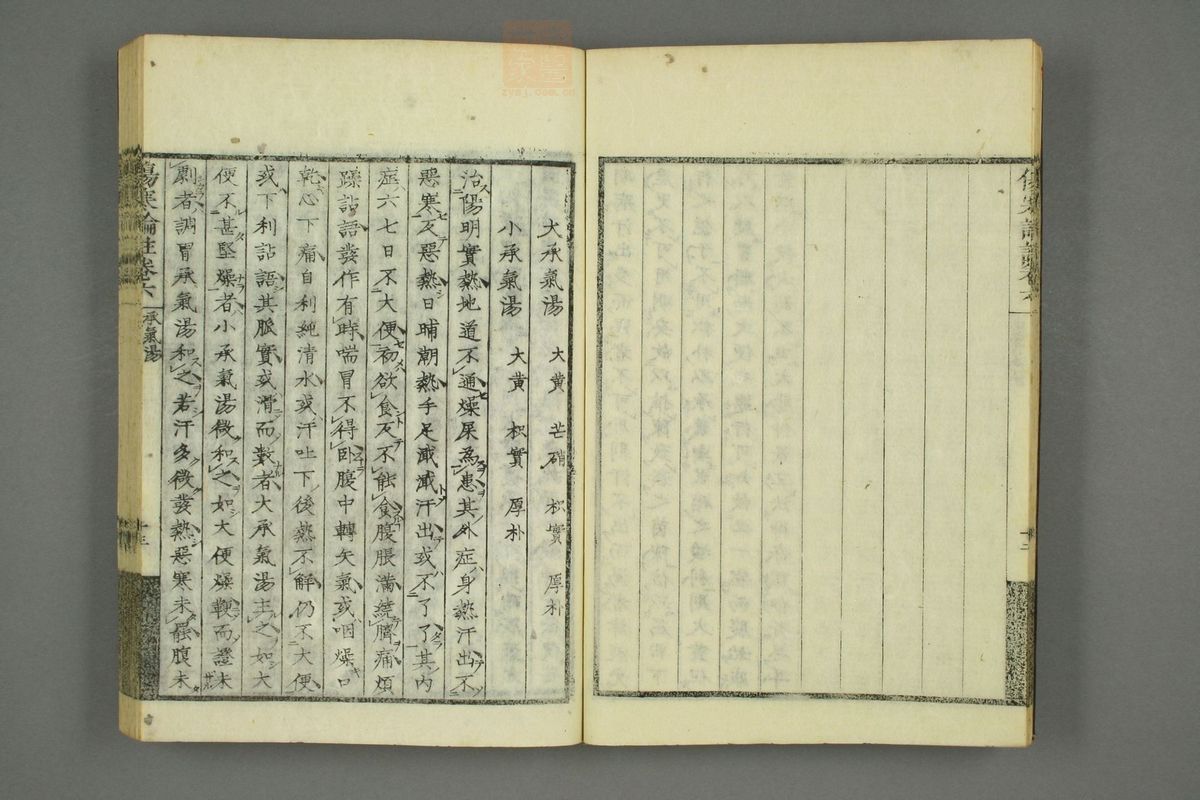 傷寒論註卷六
十三
大承氣湯　大黃　芒硝　枳實　厚朴
小承氣湯　大黃　枳實　厚朴
治陽明實熱地道不通燥屎爲患其外症身熱汗出不
惡寒反惡熱日晡潮熱手足濈濈汗出或不了了其内
症六七日不大便初欲食反不能食腹脹滿繞臍痛煩
躁詀語發作有時喘冒不得卧腹中轉矢氣或咽燥口
乾心下痛自利純清水或汗吐下後熱不解仍不大便
或下利詀語其脈實或滑而數者大承氣湯主之如大
便不甚堅燥者小承氣湯微和之如大便燥鞕而證未
劇者調胃承氣湯和之若汗多微發熱惡寒未罷腹未
傷寒論註卷六
承氣湯
十三
zysj.com.cn